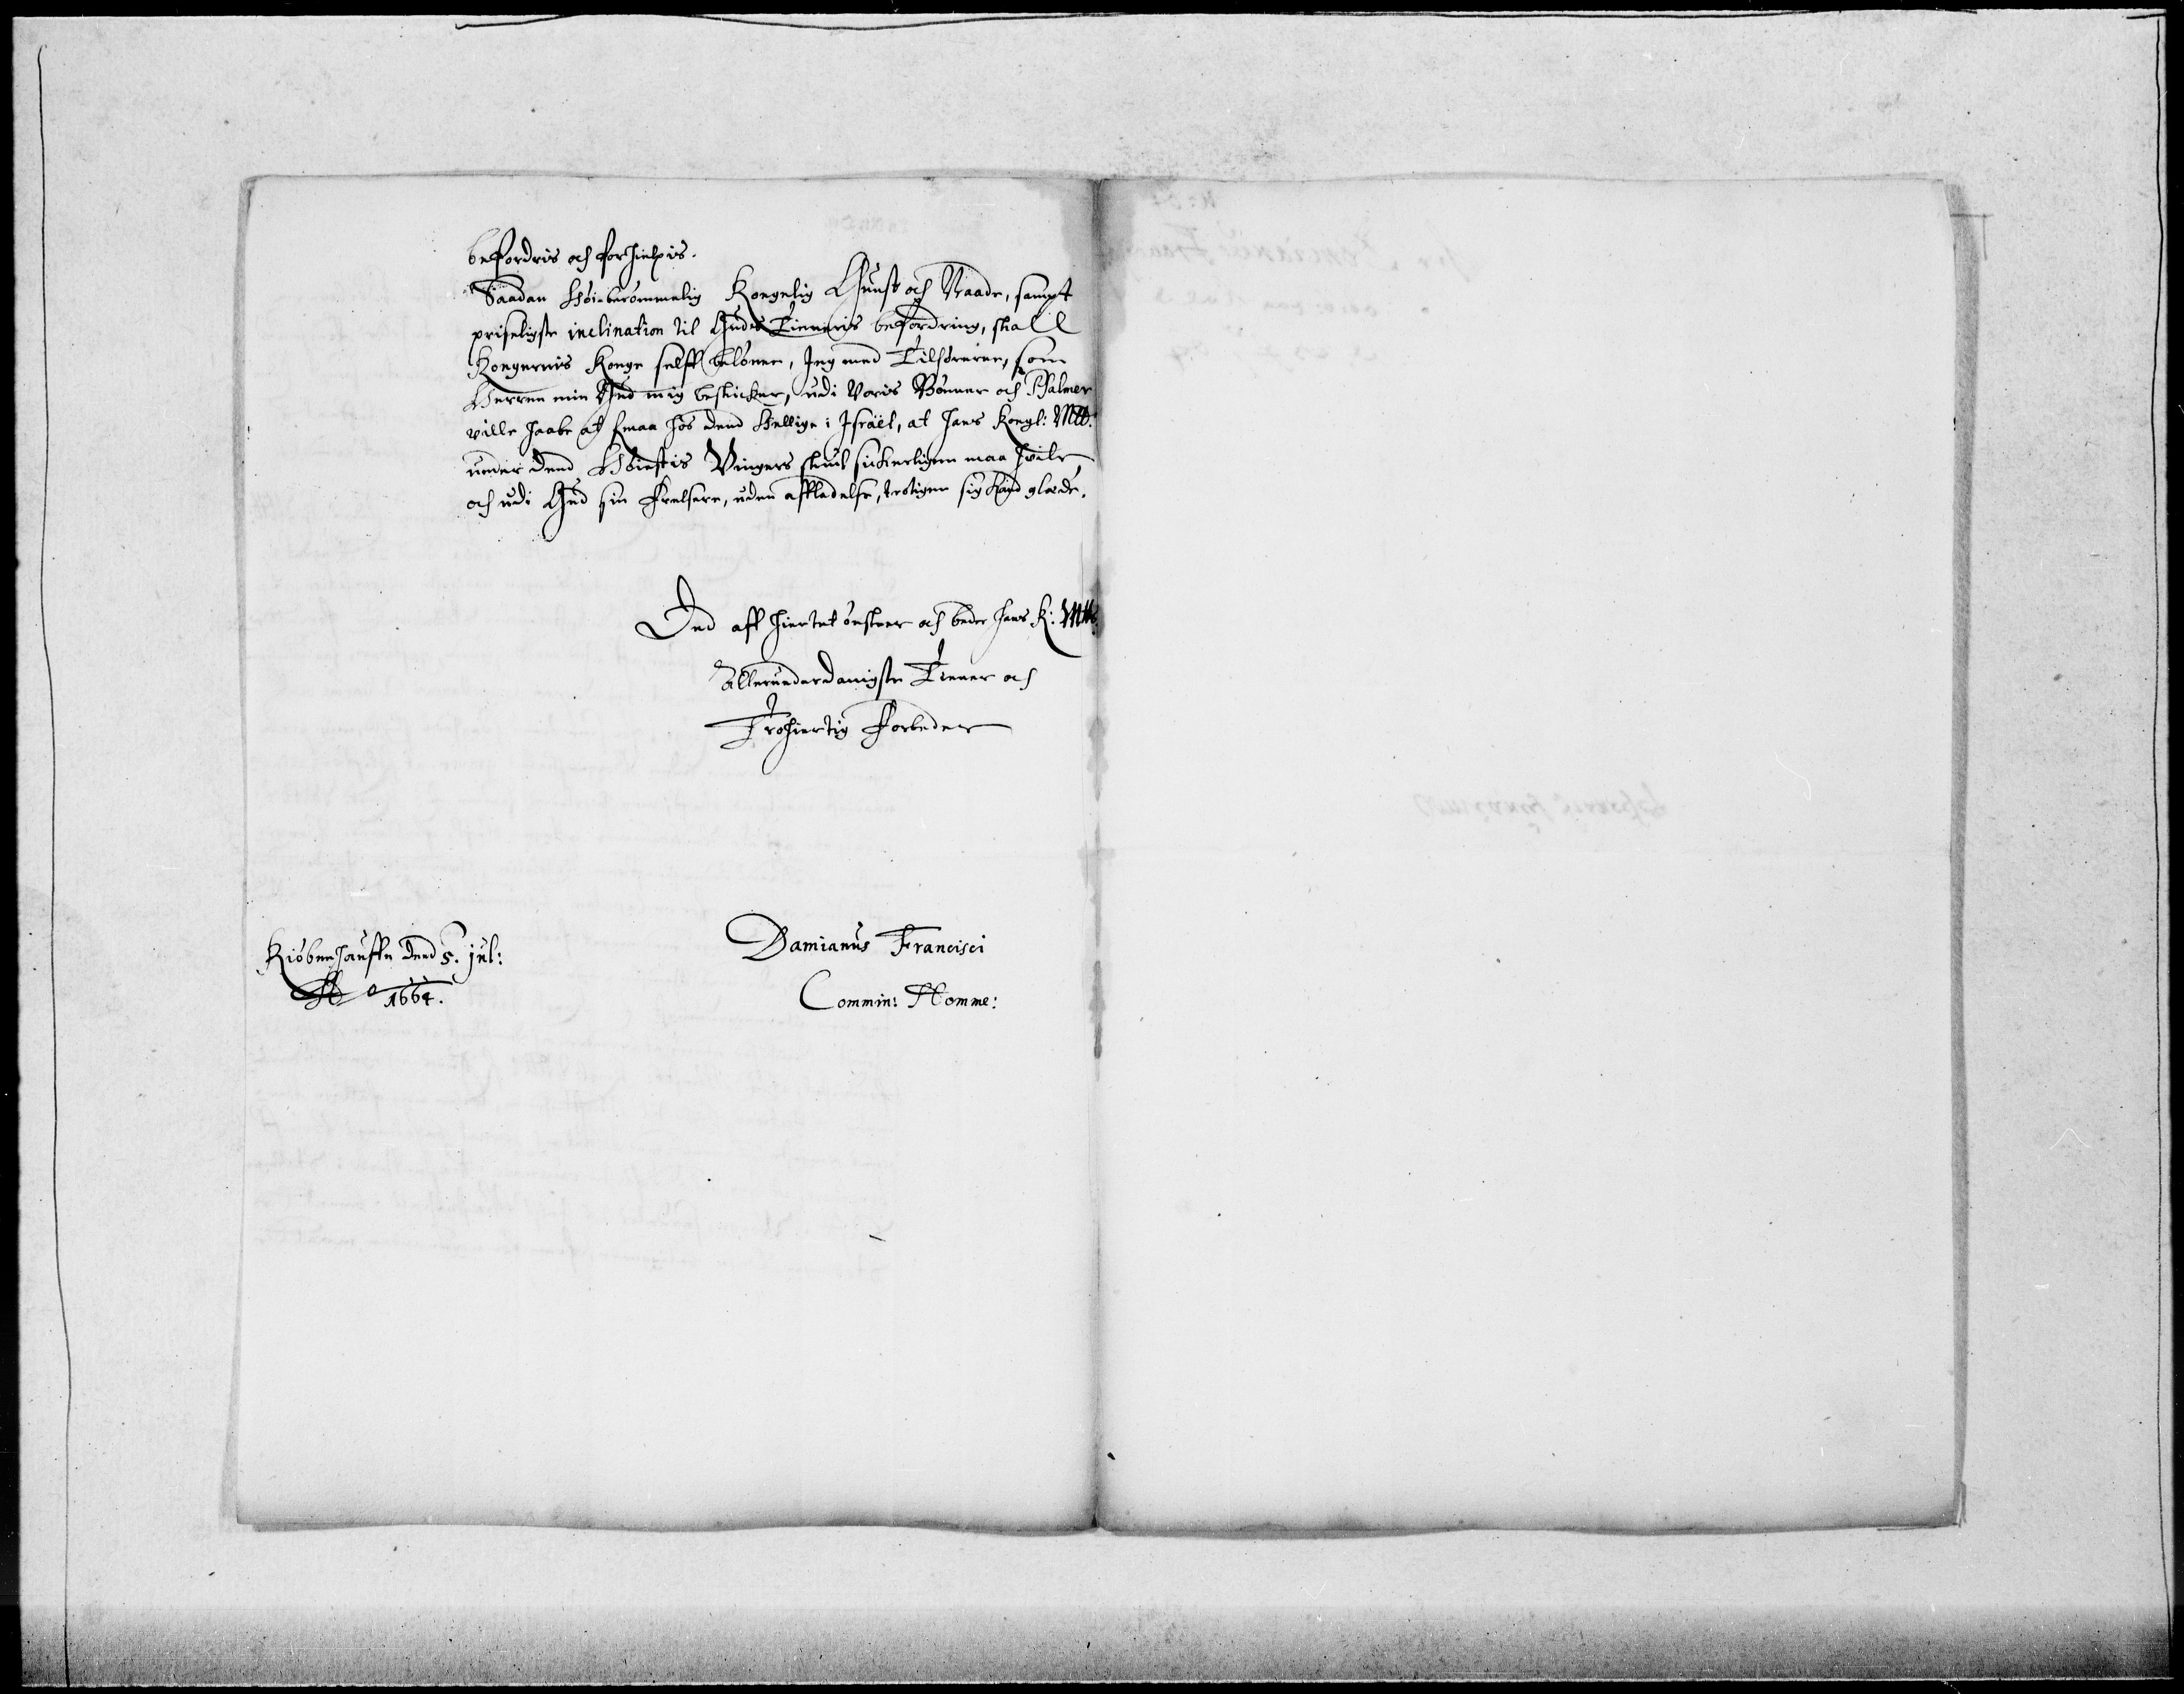 befordris och forhielpis.
Saadan Höi-berömmelig Kongelig Gunst och Naade, sampt
priseligste inclination til Guds Tieneris befordring, skall
Kongernis Konge selff belönne, Jeg med Tilhörerne, som
Herren min Gud mig beskicker, udi Voris Bönner och Psalmer
ville haabe at kmaa hos dend Hellige i Israël, at hans Kongl: Mtt:
under dend Höiestis Vingers skiul sickerligen maa hvile
och udi Gud sin Frelsere, uden affladelse, trøligen sig kand glæde.
Ded aff hiertet önsker och beder hans K: Mtts:
Allerunderdanigste Tiener och
Trohiertig Forbeder
Kiöbenhauffn dend 5. jul:
Ao 1664.
Damianus Francisci
Commin: Homme: